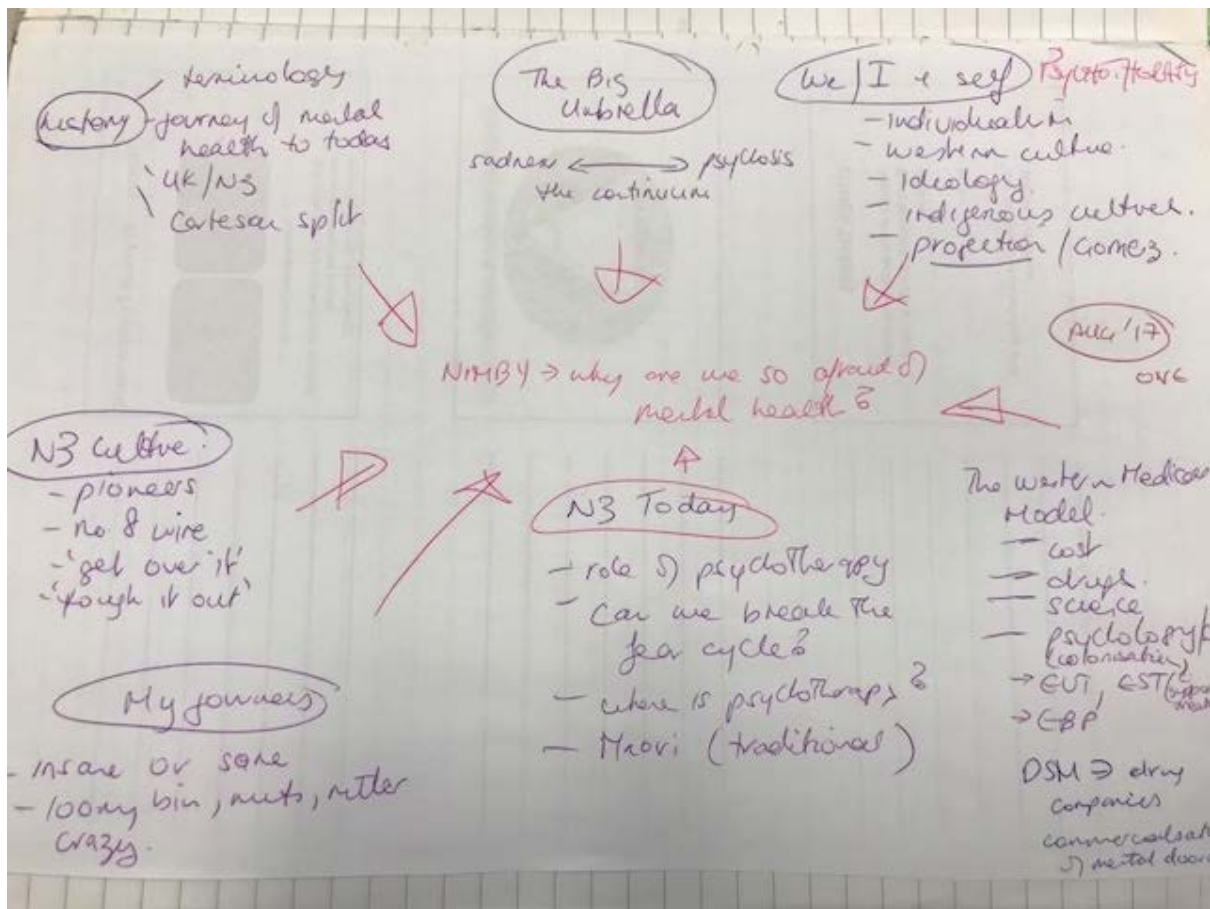 History
- terminology
- journey of mental
health to today
- UK/NZ
- Cartesan split
The Big
Umbrella
sadness ↔ psychosis
the continuum
We/I + self
- individualism
- western culture.
- Ideology
- indigenous cultures.
- projection / Gomez.
Aug '17
ONE
NIMBY → why are we so afraid of
mental health?
NZ Culture.
- pioneers
- no 8 wire
- 'get over it'
- 'tough it out'
NZ Today
- role of psychotherapy
- Can we break the
fear cycle?
- where is psychotherapy?
- Maori (traditional)
The Western Medical
Model.
- cost
- drugs.
- science
- psychology
(colonisation)
→ EVT, EST
→ EBP
DSM → drug
companies
of mental
My journey
- insane or sane
- loony bin, nuts, nutter
crazy.